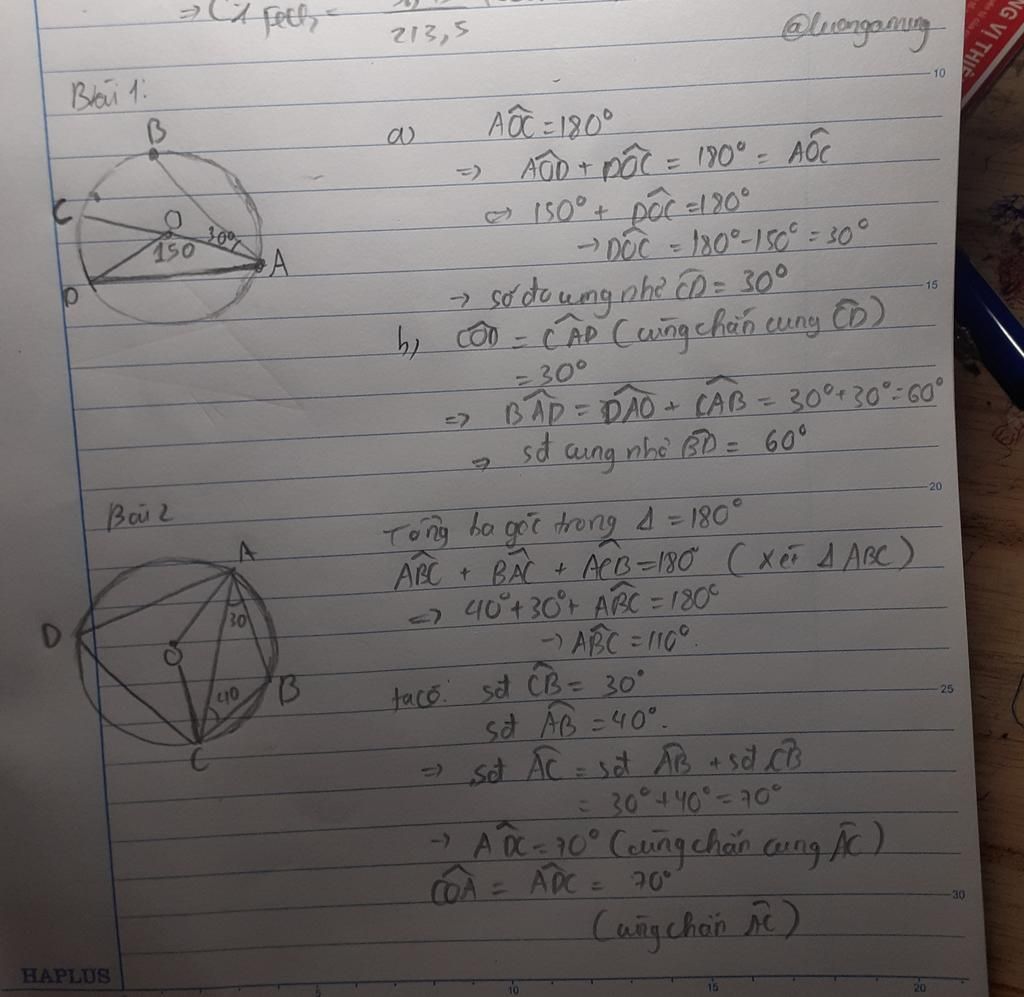 ⇒ C% FeCl₃ =
213,5
@luongaming
NG VỊ THIÊ
10
Bài 1:
B
C
O
150
30°
A
D
a) AÔC = 180°
⇒ AÔD + DÔC = 180° = AÔC
⇔ 150° + DÔC = 180°
→ DÔC = 180° - 150° = 30°
→ số đo cung nhỏ CD = 30°
15
b, CÔD = CÂD (cùng chắn cung CD)
= 30°
⇒ BÂD = DÂO + CÂB = 30° + 30° = 60°
⇒ sđ cung nhỏ BD = 60°
20
Bài 2
A
30
D
O
40
B
C
Tổng ba góc trong Δ = 180°
ABC + BAC + ACB = 180° (Xét Δ ABC)
⇒ 40° + 30° + ABC = 180°
→ ABC = 110°.
ta có: sđ CB = 30°
25
sđ AB = 40°.
⇒ sđ AC = sđ AB + sđ CB
= 30° + 40° = 70°
→ ADC = 70° (cùng chắn cung AC)
COA = ADC = 70°
30
(cùng chắn AC)
HAPLUS
5
10
15
20